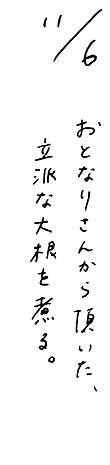 11/6
おとなりさんから頂いた、
立派な大根を煮る。